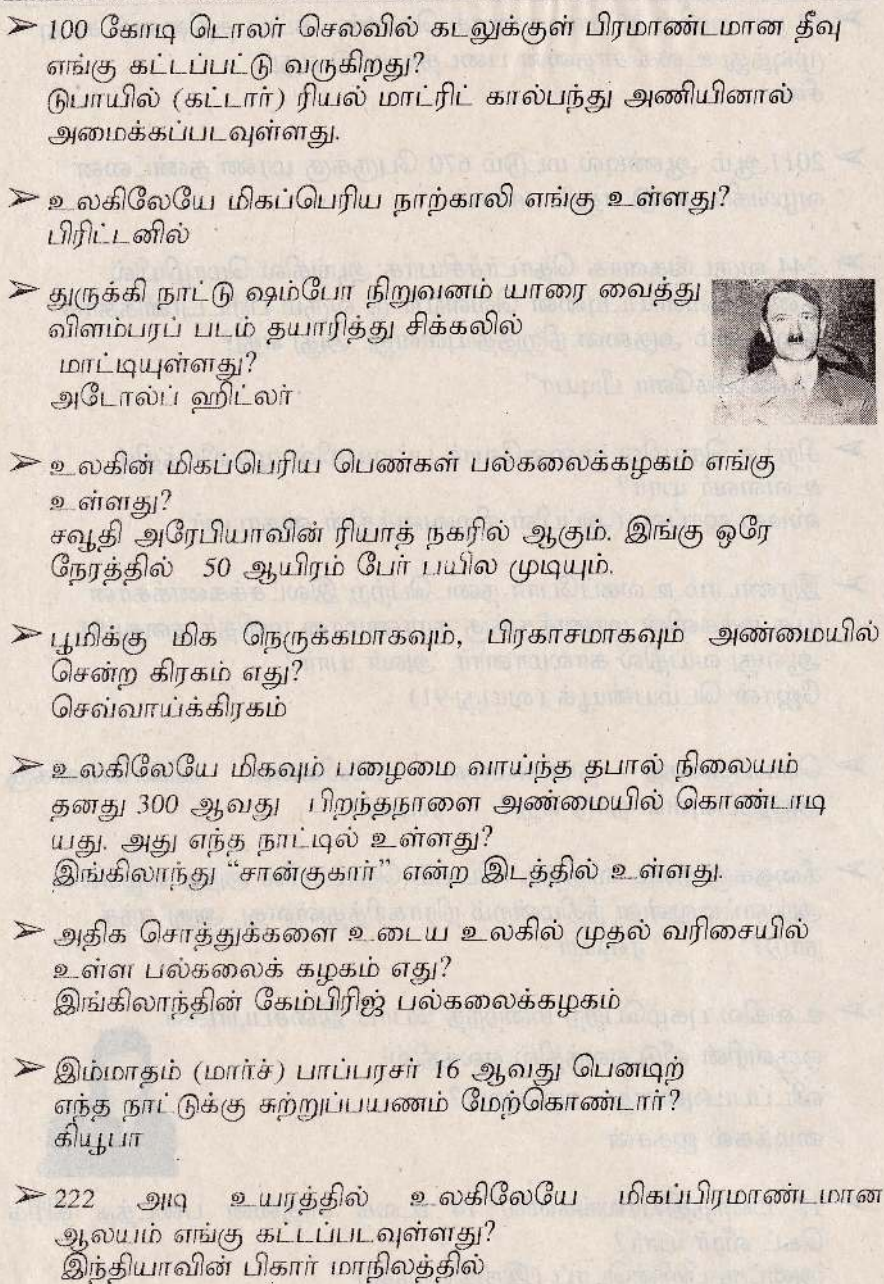 ➢ 100 கோடி டொலர் செலவில் கடலுக்குள் பிரமாண்டமான தீவு
எங்கு கட்டப்பட்டு வருகிறது?
டுபாயில் (கட்டார்) ரியல் மாட்ரிட் கால்பந்து அணியினால்
அமைக்கப்படவுள்ளது.
➢ உலகிலேயே மிகப்பெரிய நாற்காலி எங்கு உள்ளது?
பிரிட்டனில்
➢ துருக்கி நாட்டு ஷம்போ நிறுவனம் யாரை வைத்து
விளம்பரப் படம் தயாரித்து சிக்கலில்
மாட்டியுள்ளது?
அடோல்ப் ஹிட்லர்
➢ உலகின் மிகப்பெரிய பெண்கள் பல்கலைக்கழகம் எங்கு
உள்ளது?
சவூதி அரேபியாவின் ரியாத் நகரில் ஆகும். இங்கு ஒரே
நேரத்தில் 50 ஆயிரம் பேர் பயில முடியும்.
➢ பூமிக்கு மிக நெருக்கமாகவும், பிரகாசமாகவும் அண்மையில்
சென்ற கிரகம் எது?
செவ்வாய்க்கிரகம்
➢ உலகிலேயே மிகவும் பழைமை வாய்ந்த தபால் நிலையம்
தனது 300 ஆவது பிறந்தநாளை அண்மையில் கொண்டாடி
யது. அது எந்த நாட்டில் உள்ளது?
இங்கிலாந்து “சான்குகார்” என்ற இடத்தில் உள்ளது.
➢ அதிக சொத்துக்களை உடைய உலகில் முதல் வரிசையில்
உள்ள பல்கலைக் கழகம் எது?
இங்கிலாந்தின் கேம்பிரிஜ் பல்கலைக்கழகம்
➢ இம்மாதம் (மார்ச்) பாப்பரசர் 16 ஆவது பெனடிற்
எந்த நாட்டுக்கு சுற்றுப்பயணம் மேற்கொண்டார்?
கியூபா
➢ 222 அடி உயரத்தில் உலகிலேயே மிகப்பிரமாண்டமான
ஆலயம் எங்கு கட்டப்படவுள்ளது?
இந்தியாவின் பிகார் மாநிலத்தில்